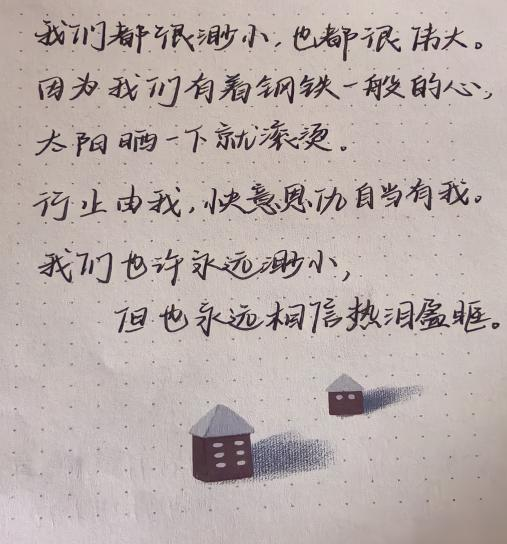 我们都很渺小，也都很伟大。
因为我们有着钢铁一般的心，
太阳晒一下就滚烫。
行止由我，快意恩仇自当有我。
我们也许永远渺小，
但也永远相信热泪盈眶。